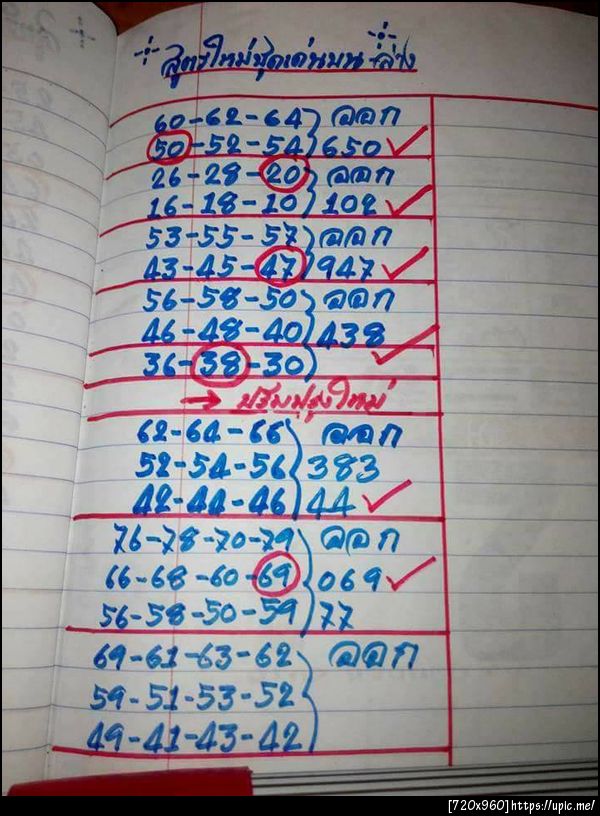 สูตรใหม่ชุดเด่นบน-ล่าง
60-62-64 ออก
50-52-54 650
26-28-20 ออก
16-18-10 102
53-55-57 ออก
43-45-47 947
56-58-50 ออก
46-48-40 438
36-38-30
→ ปรับปรุงใหม่
62-64-66 ออก
52-54-56 383
42-44-46 44
76-78-70-79 ออก
66-68-60-69 069
56-58-50-59 77
69-61-63-62 ออก
59-51-53-52
49-41-43-42
[720x960]https://upic.me/